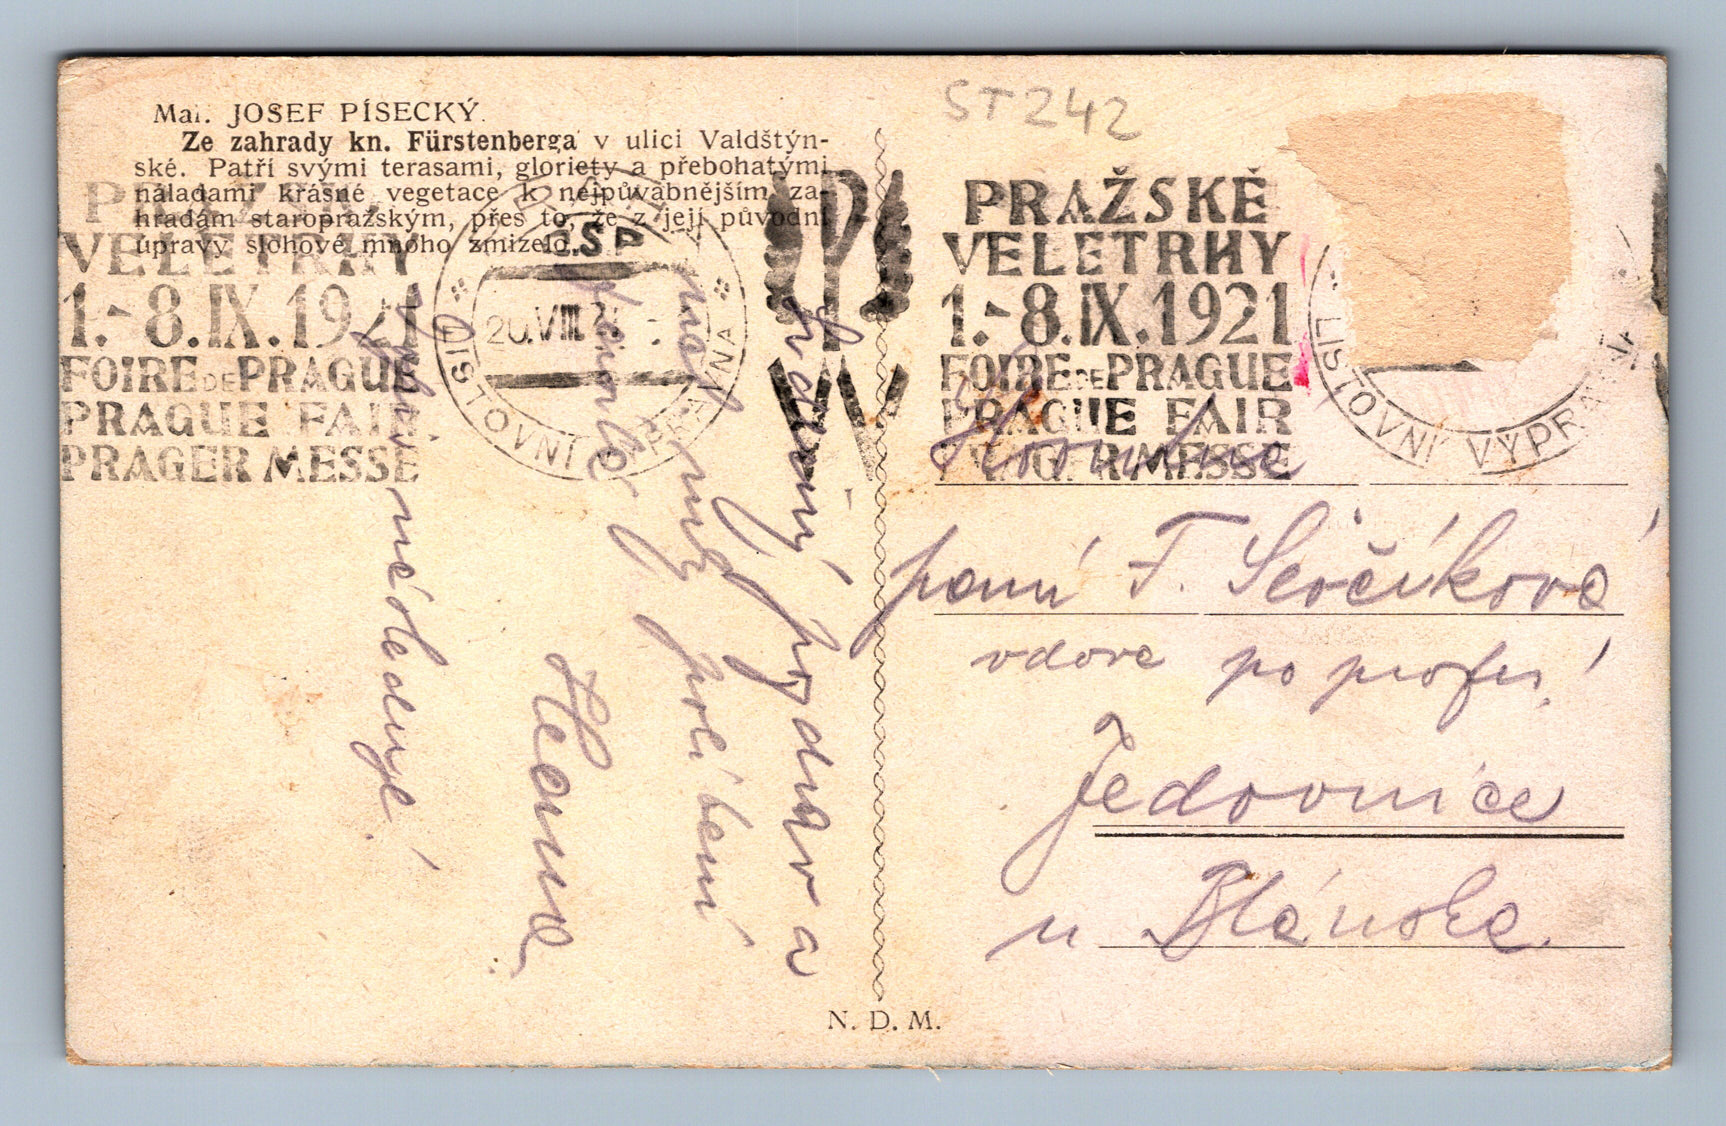 Mal. JOSEF PÍSECKÝ.
Ze zahrady kn. Fürstenberga v ulici Valdštýn-
ské. Patří svými terasami, gloriety a přebohatými
náladami krásné vegetace k nejpůvabnějším za-
hradám staropražským, přes to, že z její původní
úpravy slohové mnoho zmizelo.
ST 242
PRAŽSKÉ
VELETRHY
1.-8.IX.1921
FOIRE DE PRAGUE
PRAGUE FAIR
PRAGER MESSE
Č.S.P.
20.VIII.21
LISTOVNÍ VÝPRAVNA
PRAŽSKÉ
VELETRHY
1.-8.IX.1921
FOIRE DE PRAGUE
PRAGUE FAIR
PRAGER MESSE
LISTOVNÍ VÝPRAVNA
Krásný pozdrav a
políbení
Hana
paní F. Ševčíková
vdova po profes.
Jedovnice
u Blanska.
N. D. M.